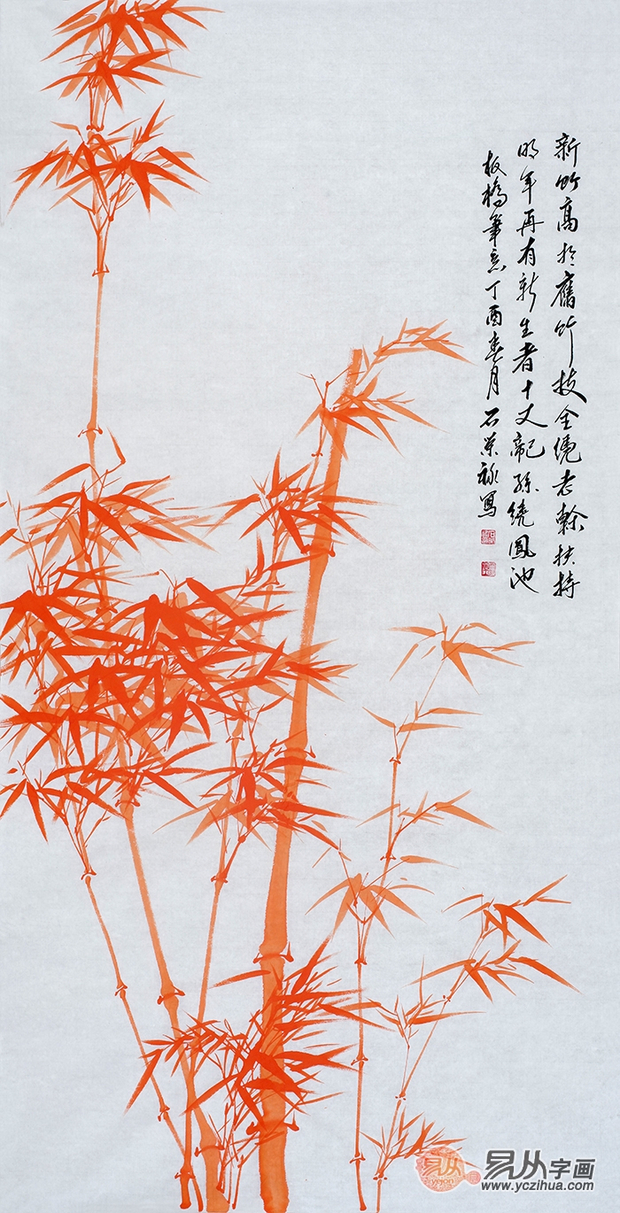 新竹高於舊竹枝全凭老榦扶持
明年再有新生者十丈龍孫繞鳳池
板橋筆意丁酉春月石荣禄寫
易从
易从字画
www.yczihua.com